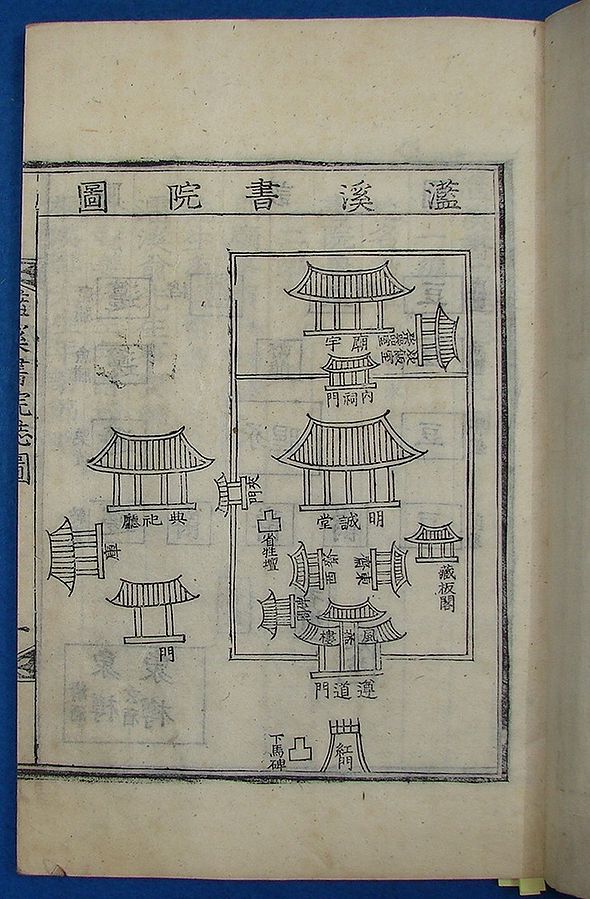 灆溪書院圖
廟宇
內祠門
明誠堂
夾門
典祀廳
省牲壇
庫
藏板閣
門
風詠樓
遵道門
紅門
下馬碑
溪書院誌圖